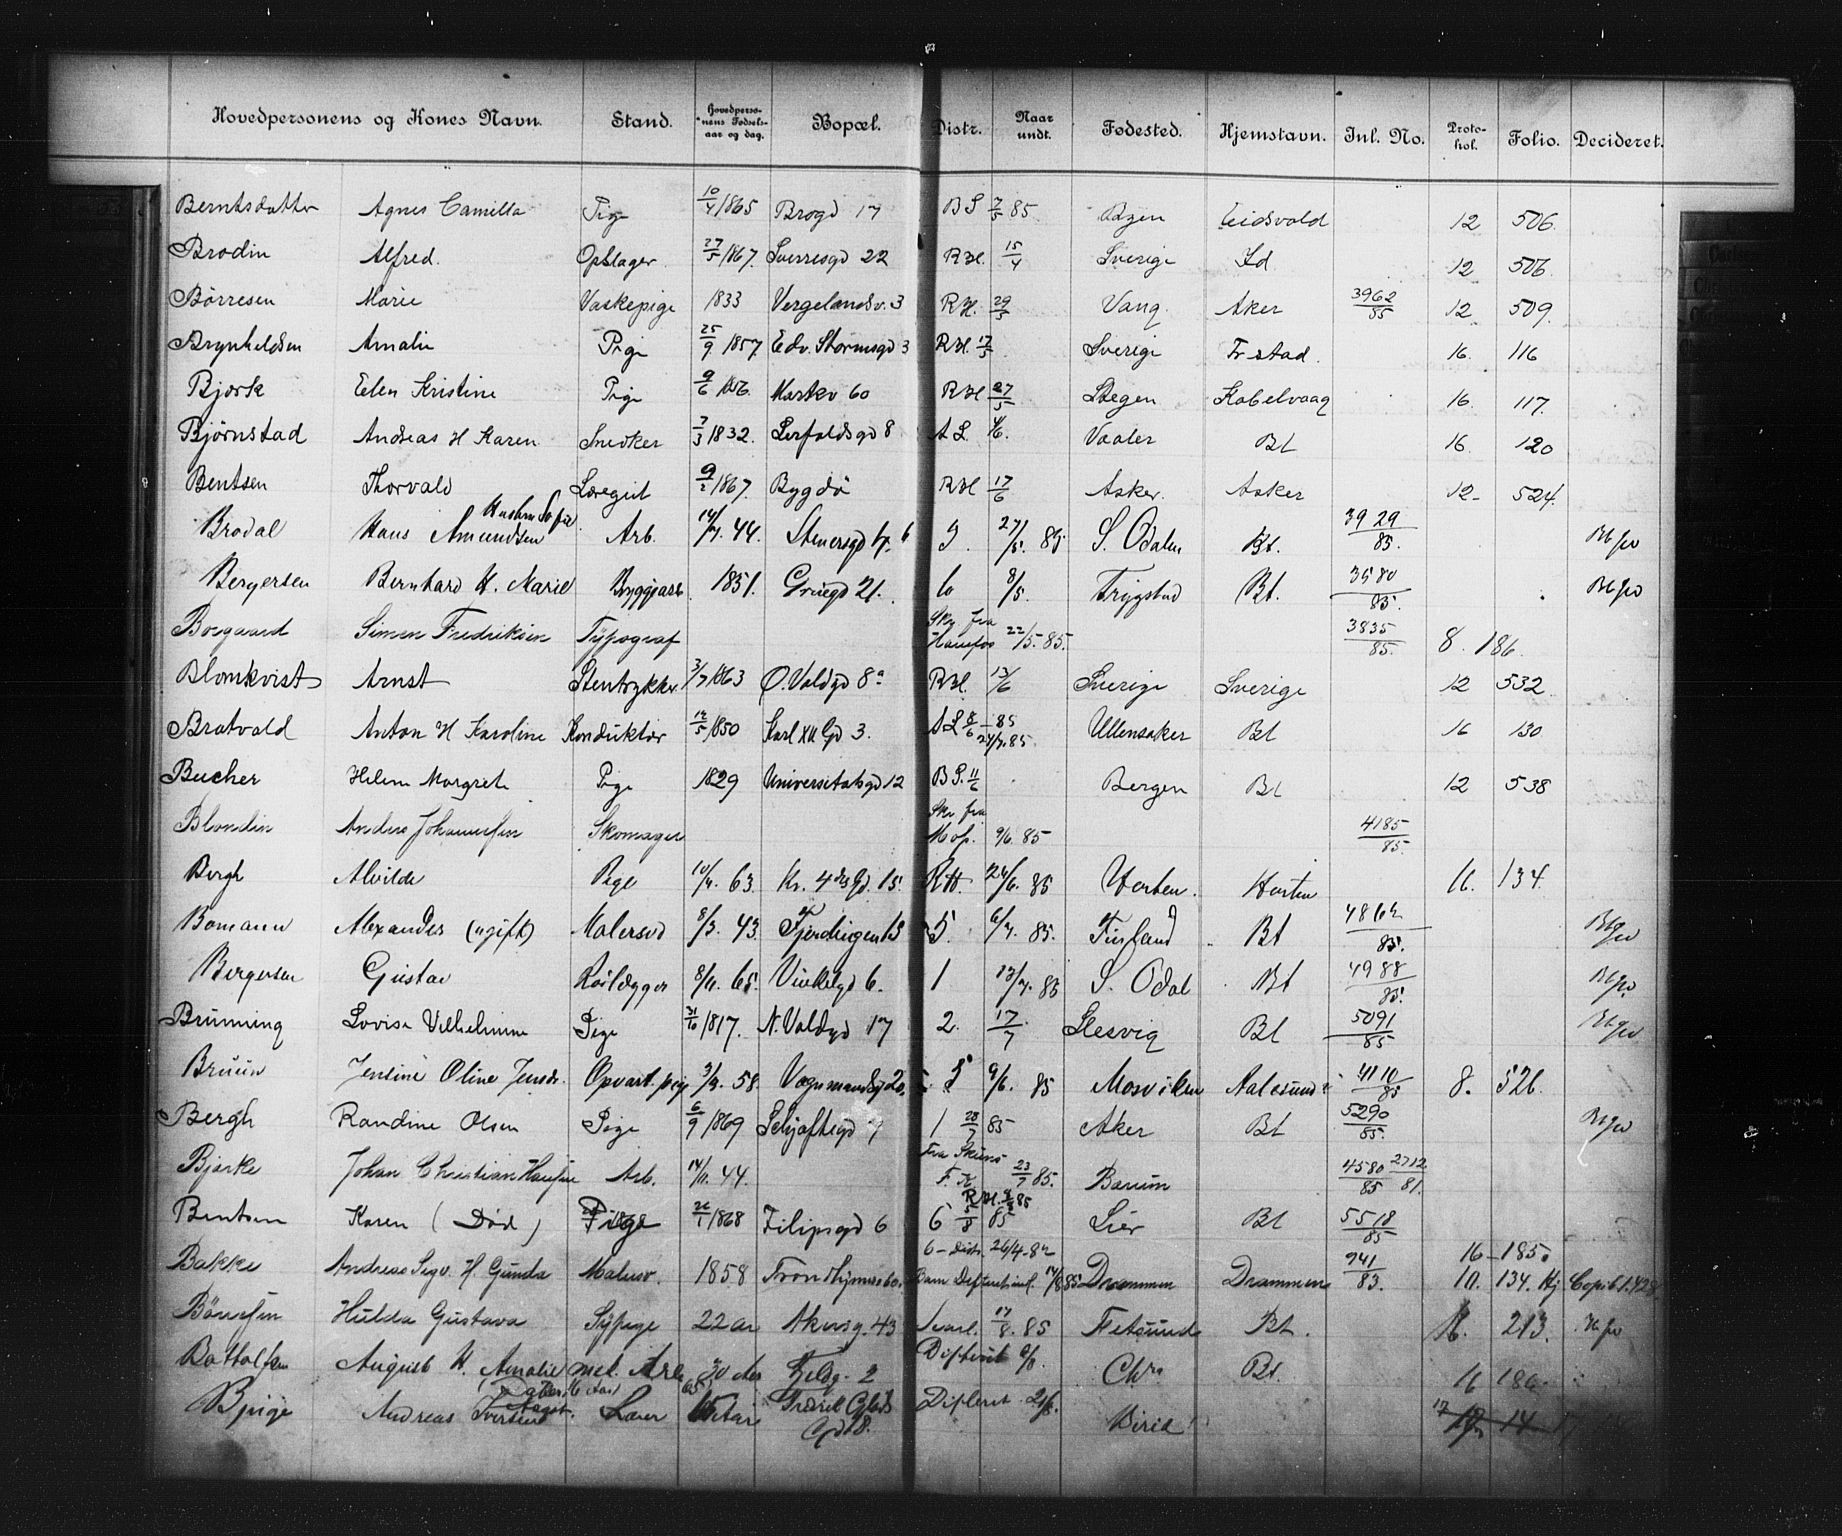 Hovedpersonens og Kones Navn. Stand. Hovedpersonens Fødselsaar og dag. Bopæl. Distr. Naar undt. Fødested. Hjemstavn. Inl. No. Protokol. Folio. Decideret.
Berntsdatter Agnes Camilla Pige 10/4 1865 Brogd 17 BS 7/5 85 Bgen Eidsvold 12 506.
Brodin Alfred. Opslager. 27/5 1867. Sverresgd 22 RH. 15/4 Sverige Id 12 506.
Børresen Marie Vaskepige 1833 Vergelandsv. 3 RH. 29/5 Vang. Aker 3962/85 12 509.
Brynheldsen Amalie Pige 25/9 1857. Edv. Stormsgd 3 RH. 17/5 Sverige Fr stad. 16. 116
Bjørk Elen Kristine Pige 9/6 1856. Markv 60 RH 27/5 Stegen Kabelvaag 16. 117.
Bjørnstad Andreas H Karen Snedker 7/3 1832. Lerfaldsgd 8 AL 4/6. Vaaler Bt 16. 120
Bentsen Thorvald Løregut 9/2 1867. Bygdø RH 17/6 Asker. Asker 12- 524.
Brodal Hans Amundsen Hustru Sofie Arb. 14/7. 44. Stenersgd 4. 6 3. 27/5. 85 S. Odalen Bt. 3929/85. Bt fv
Bergersen Bernhard H. Marie Byggearb. 1851. Grüegd 21. 6 8/5. Trygstad Bt. 3580/85. Bt fv
Borgaard Simen Fredriksen Typograf Skr fra Hønefos 22/5. 85. 3835/85. 8. 186.
Blomkvist Arnst Stentrykker 3/7 1863 Ø. Voldgd 8a RH. 13/6 Sverige Sverige 12 532
Bratvold Anton H Karoline Konduktør 12/5 1850 Karl XII Gd 3. AL 8/6 -85 24/7. 85 Ullensaker Bt 16 130
Bucher Helene Margrete Pige 1829 Universitetsgd 12 BS. 11/6 Bergen Bt 12 538
Blondin Anders Johannesen Skomager Skr fra Mop. 9/6. 85 4185/85.
Bergh Alvilde Pige 10/4. 63. Kr. 4des Gd. 15. RH. 24/6. 85 Horten. Horten 16. 134.
Bomann Alexander (ugift) Malersvd 8/3. 43. Fjerdingen 13 5. 6/7. 85. Finland Bt 4862/85. Bt fv
Bergersen Gustav Rørlægger 8/11. 65. Vinkelgd 6. 1 13/7. 85 S. Odal Bt 4988/85. Bt fv
Brünning Lovise Vilhelmine Pige 31/6 1817. N. Voldgd 17 2. 17/7 Slesvig Bt 5091/85 Bt fv
Bruun Jensine Oline Jensdr. Opvart. pige 3/9. 58. Vognmandsgd 20. 5 9/6. 85 Mosviken Aalesund 4110/85 8. 526.
Bergh Randine Olsen Pige 6/9 1869 Schjøftegd 7 1 28/7 85 Aker Bt 5290/85. Bt fv
Bjerke Johan Christian Hansen Arb. 14/11. 44. Fra Skuns F. K 23/7 85. Bærum 4580/85 2712/81.
Bentsen Karen (Død) Pige 26/1 1868 Filipsgd 6 6 5/8 85 RH. 85 Lier Bt 5518/85
Bakke Andreas Sigv. H. Gunda Malersv. 1858 Trondhjemsv 60. 6- Distr. 26/4-87 Barn Difterit inl. 14/8 85 Drammen Drammen 941/83. 16-185. 10. 134. Hj Copib 1.428
Børresen Hulda Gustava Sypige 22 aar Akersg. 43 Scarl. 17/8. 85 Fetsund Bt. 16. 213. Bt fv
Botholfsen August H. Amalie mel. Arb 30 Aar Fjeldg. 2 Difterit 9/8. Chra Bt. 16 186.
Bjrige Andreas Iversens Datter Aagot (6 Aar) Lærer 65 Aar Fredrik Glads Gd 8. Difterit 21/8. Birid 17 14